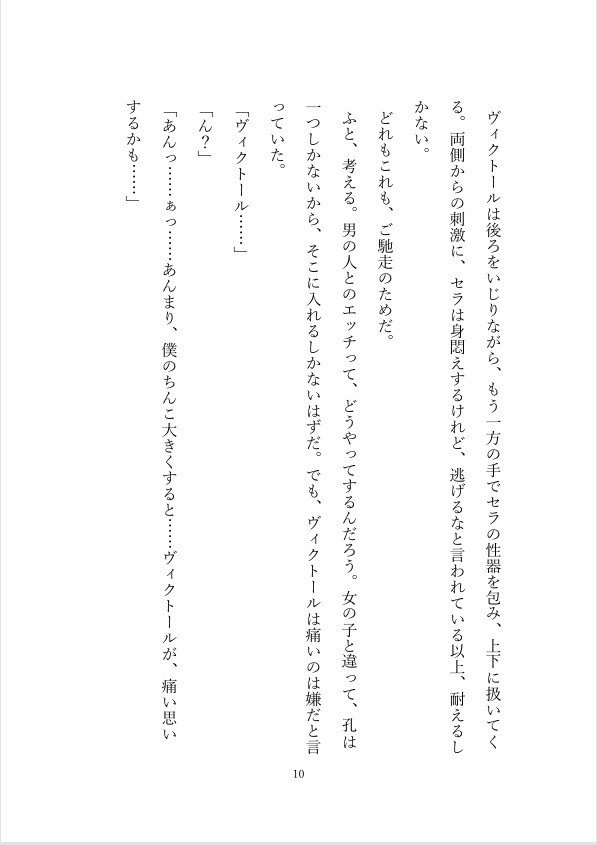 ヴィクトールは後ろをいじりながら、もう一方の手でセラの性器を包み、上下に扱いてく
る。両側からの刺激に、セラは身悶えするけれど、逃げるなと言われている以上、耐えるし
かない。
どれもこれも、ご馳走のためだ。
ふと、考える。男の人とのエッチって、どうやってするんだろう。女の子と違って、孔は
一つしかないから、そこに入れるしかないはずだ。でも、ヴィクトールは痛いのは嫌だと言
っていた。
「ヴィクトール……」
「ん？」
「あんっ……ぁっ……あんまり、僕のちんこ大きくすると……ヴィクトールが、痛い思い
するかも……」
10